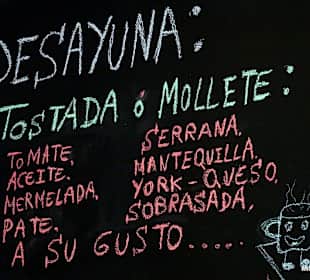 DESAYUNA:
TOSTADA ó MOLLETE:
TOMATE,
ACEITE.
MERMELADA,
PATE.
SERRANA,
MANTEQUILLA,
YORK-QUESO,
SOBRASADA,
A SU GUSTO.....